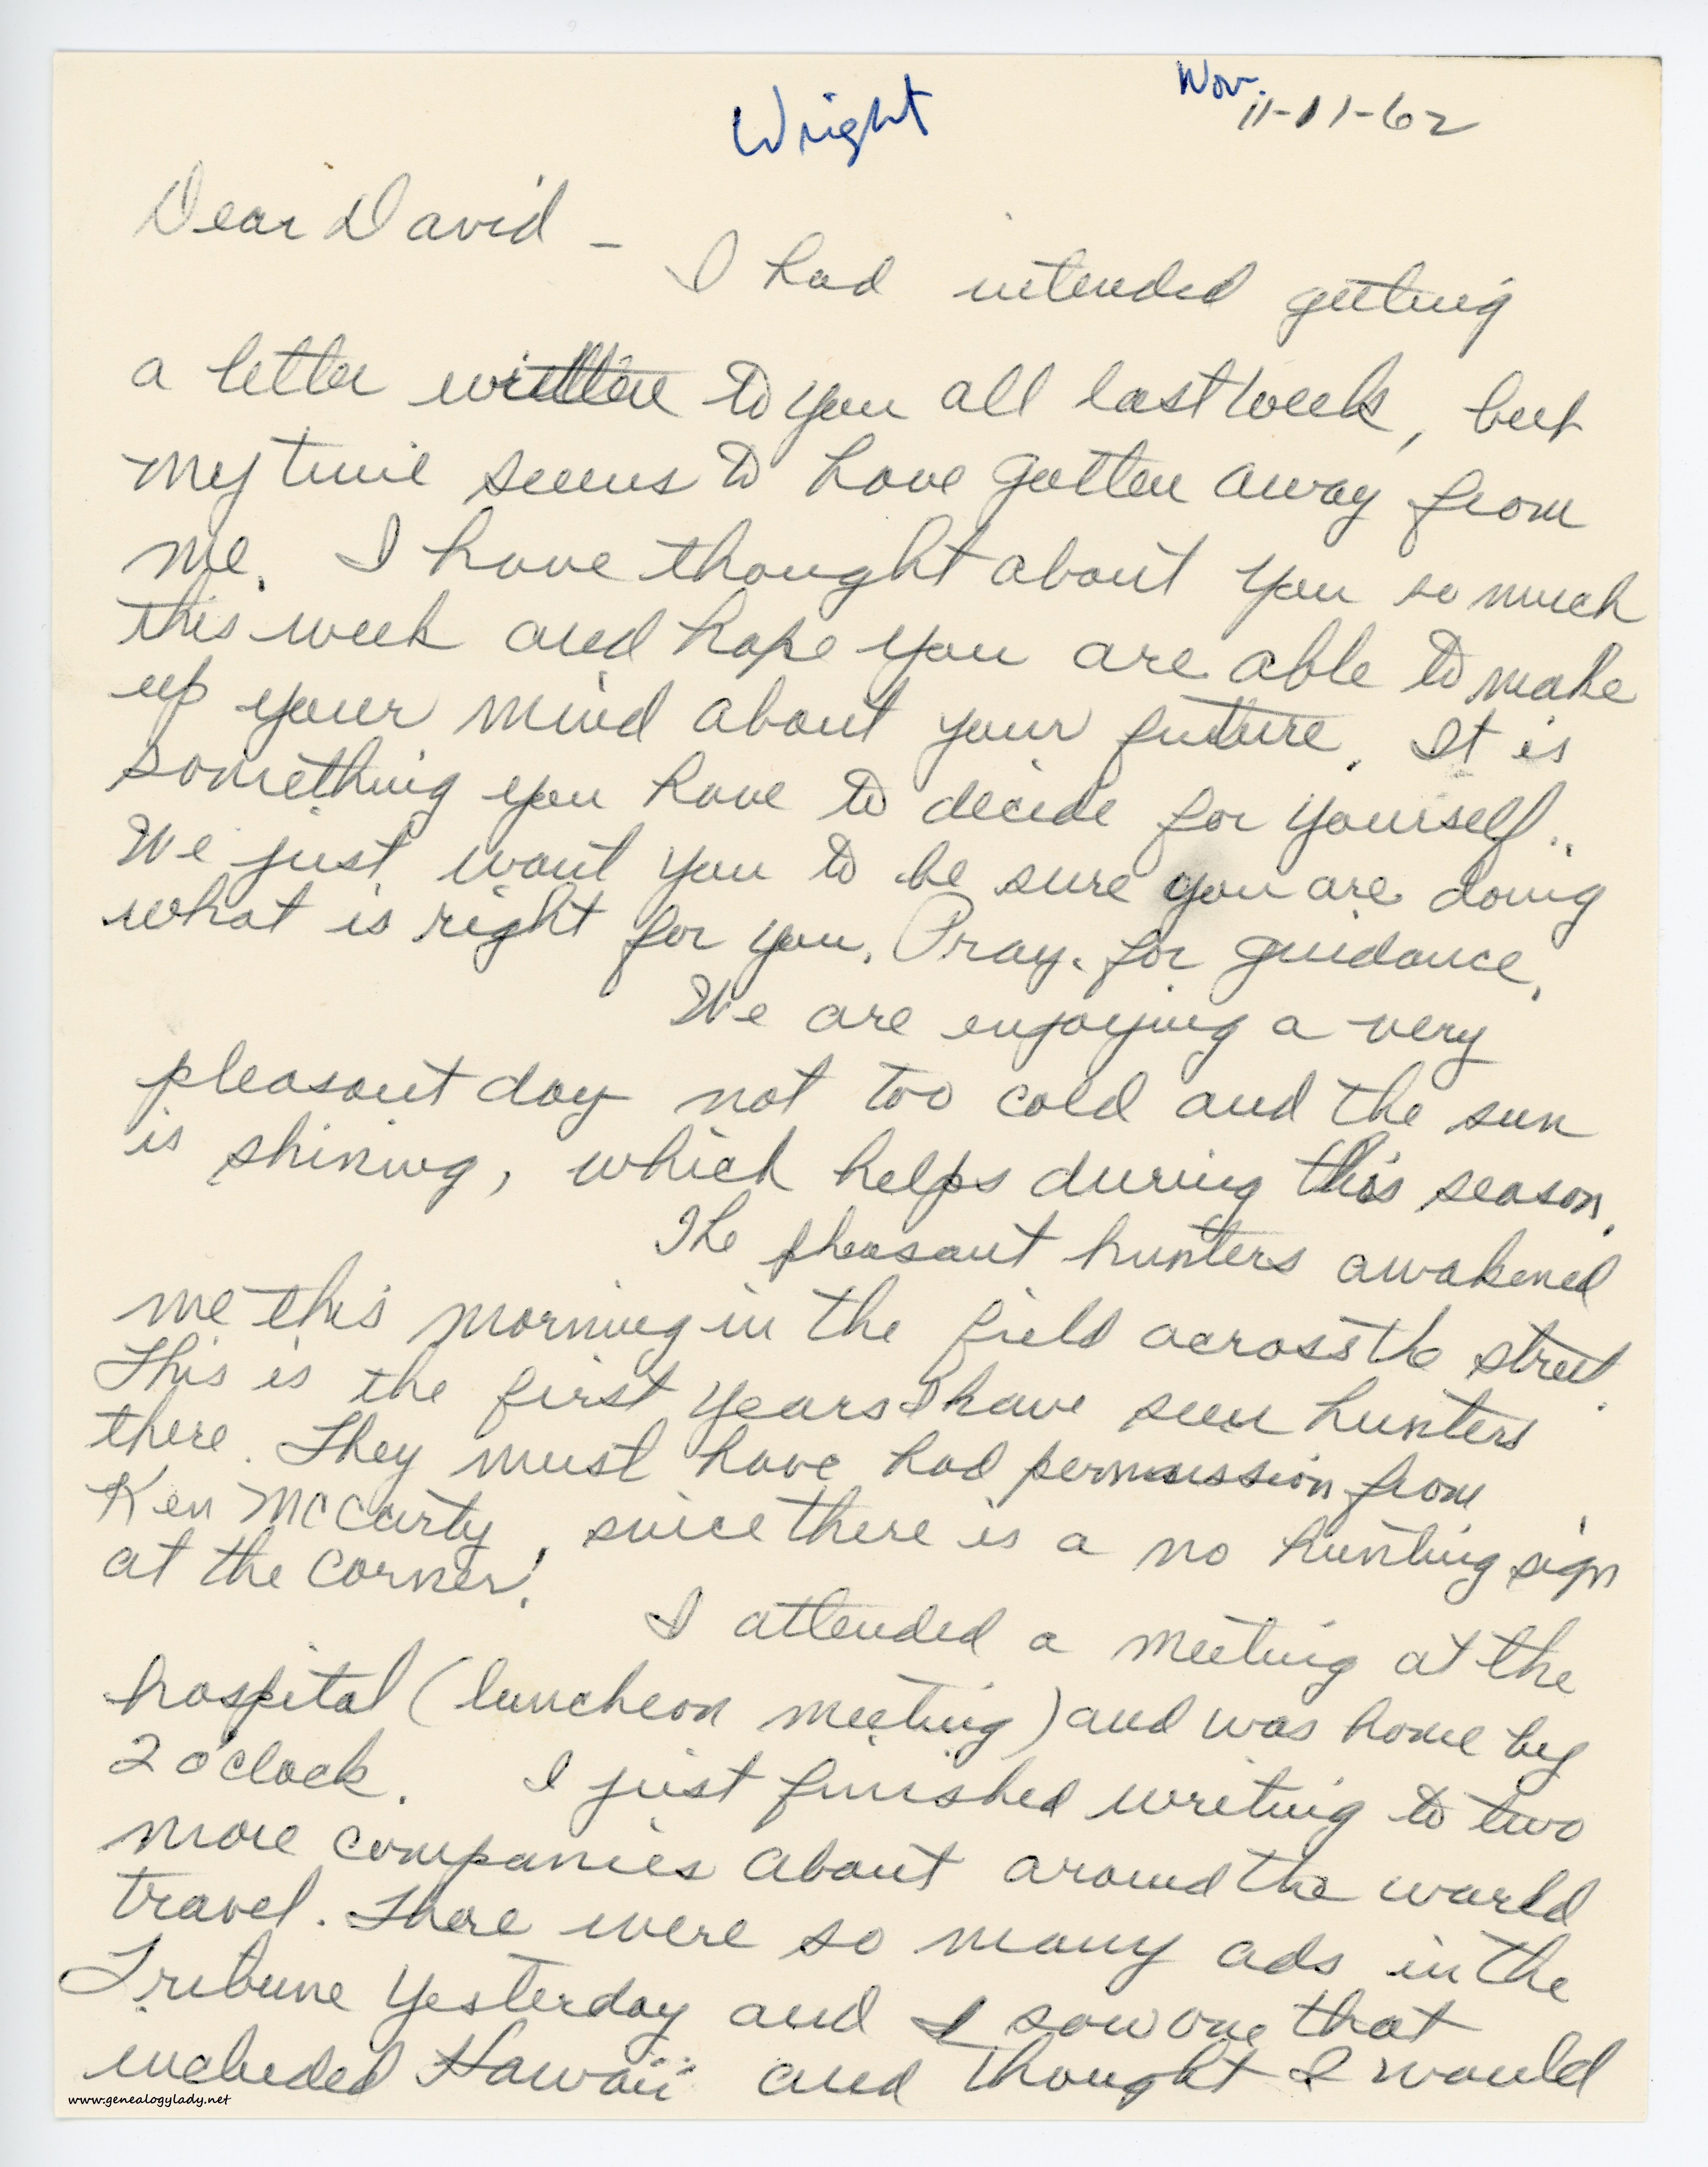 Wright
Nov.
11-11-62
Dear David -
I had intended getting
a letter written to you all last week, but
my time seems to have gotten away from
me. I have thought about you so much
this week and hope you are able to make
up your mind about your future. It is
something you have to decide for yourself..
We just want you to be sure you are doing
what is right for you. Pray for guidance.
We are enjoying a very
pleasant day not too cold and the sun
is shining, which helps during this season.
The pheasant hunters awakened
me this morning in the field across the street.
This is the first years I have seen hunters
there. They must have had permission from
Ken McCarty, since there is a no hunting sign
at the corner!
I attended a meeting at the
hospital (luncheon meeting) and was home by
2 o'clock. I just finished writing to two
more companies about around the world
travel. There were so many ads in the
Tribune yesterday and I saw one that
included Hawaii and thought I would
www.genealogylady.net